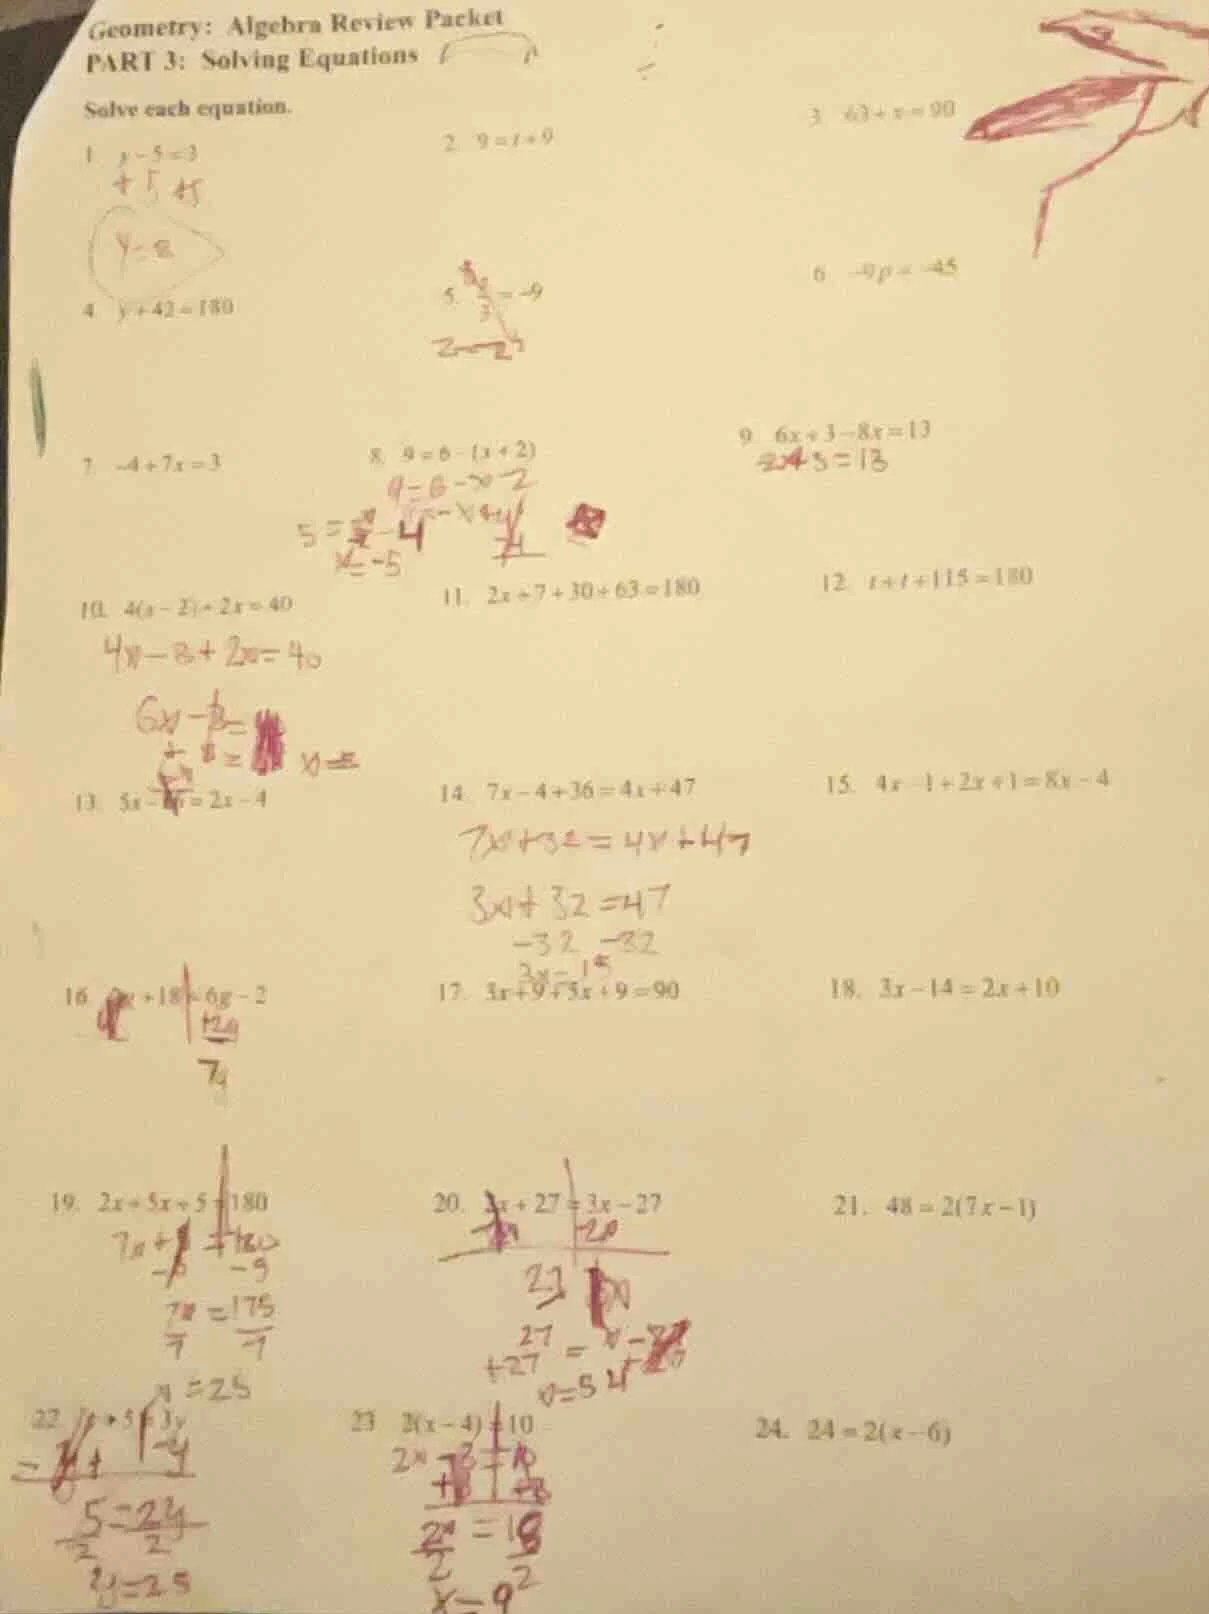 Geometry: Algebra Review Packet
PART 3: Solving Equations
Solve each equation.
1. y - 5 = 3
+5 +5
y = 8
2. 9 = t + 9
3. 63 + x = 90
4. y + 42 = 180
5. = -9
3
6. -9p = -45
7. -4 + 7x = 3
8. 9 = 6 - (x + 2)
9 = 6 - x - 2
5 = - 4
x = -5
9. 6x + 3 - 8x = 13
3 = 13
10. 4(x - 2) + 2x = 40
4x - 8 + 2x = 40
6x - 8 =
+ 8 =
x =
11. 2x + 7 + 30 + 63 = 180
12. t + t + 115 = 180
13. 5x - = 2x - 4
14. 7x - 4 + 36 = 4x + 47
7x + 32 = 4x + 47
3x + 32 = 47
-32 -32
3x = 15
15. 4x - 1 + 2x + 1 = 8x - 4
16. + 18 = 6g - 2
7g
17. 3x + 9 + 5x + 9 = 90
18. 3x - 14 = 2x + 10
19. 2x + 5x + 5 = 180
7x + = 180
-5
7x = 175
7 7
x = 25
20. 2x + 27 = 3x - 27
-2x
27
27 = x -
+27
x = 54
21. 48 = 2(7x - 1)
22. y + 5 = 3y
-y
5 = 2y
2 2
y = 25
23. 2(x - 4) = 10
2x - 8 = 10
+8 +8
2x = 18
2 2
x = 9
24. 24 = 2(x - 6)